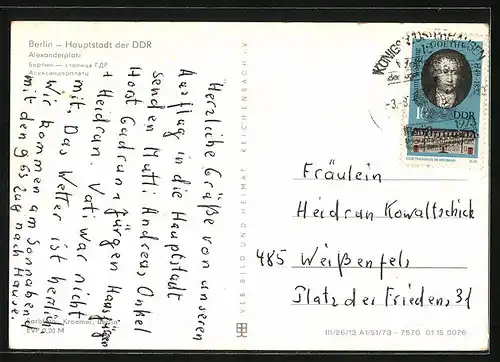 Berlin – Hauptstadt der DDR
Alexanderplatz
Берлин – столица ГДР
Александерплатц
Herzliche Grüße von unseren
Ausflug in die Hauptstadt
senden Mutti Andreas Onkel
Horst Gudrun Jürgen Hansjürgen
+ Heidran. Vati war nicht
mit. Das Wetter ist herrlich
Wir kommen am Sonnabend
mit den 965 Zug nach Hause.
Farbfoto: Kraemer, Berlin
EVP 0,20 M
VEB BILD UND HEIMAT REICHENBACH i. V.
KÖNIGS WUSTERHAUSEN
J. W. GOETHE
10
DDR
GOETHEHAUS IN WEIMAR
1973
Fräulein
Heidran Kowaltschick
485 Weißenfels
Platz der Friedens 31
III/26/13 A1/51/73 – 7570 01 15 0076